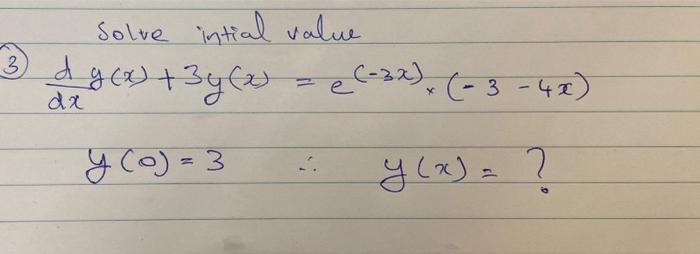 Solve intial value
3 d/dx y(x) + 3y(x) = e^(-3x) × (-3 - 4x)
y(0) = 3 ∴ y(x) = ?